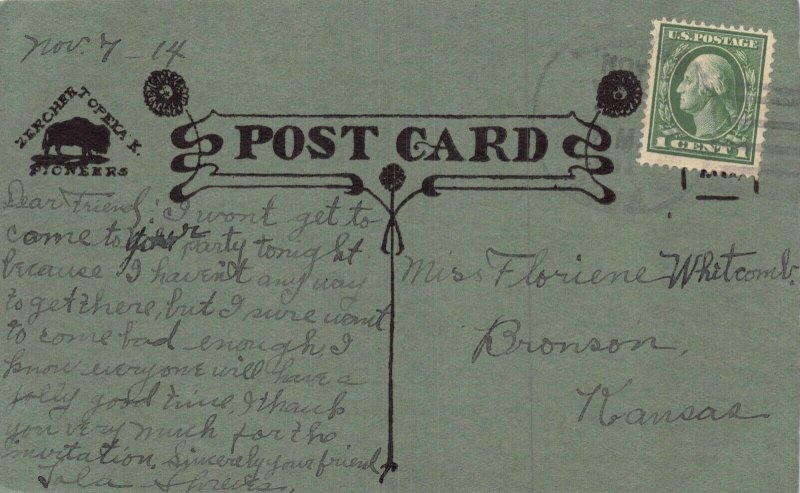 Nov. 7 - 14
U.S. POSTAGE
1 CENT 1
ZERCHER TOPEKA K.
PIONEERS
POST CARD
Dear Friend: I wont get to
come to your party tonight
because I haven't any way
to get there, but I sure want
to come bad enough, I
know everyone will have a
jolly good time, I thank
you very much for the
invitation, Sincerely your friend
Miss Floriene Whitcomb.
Bronson,
Kansas